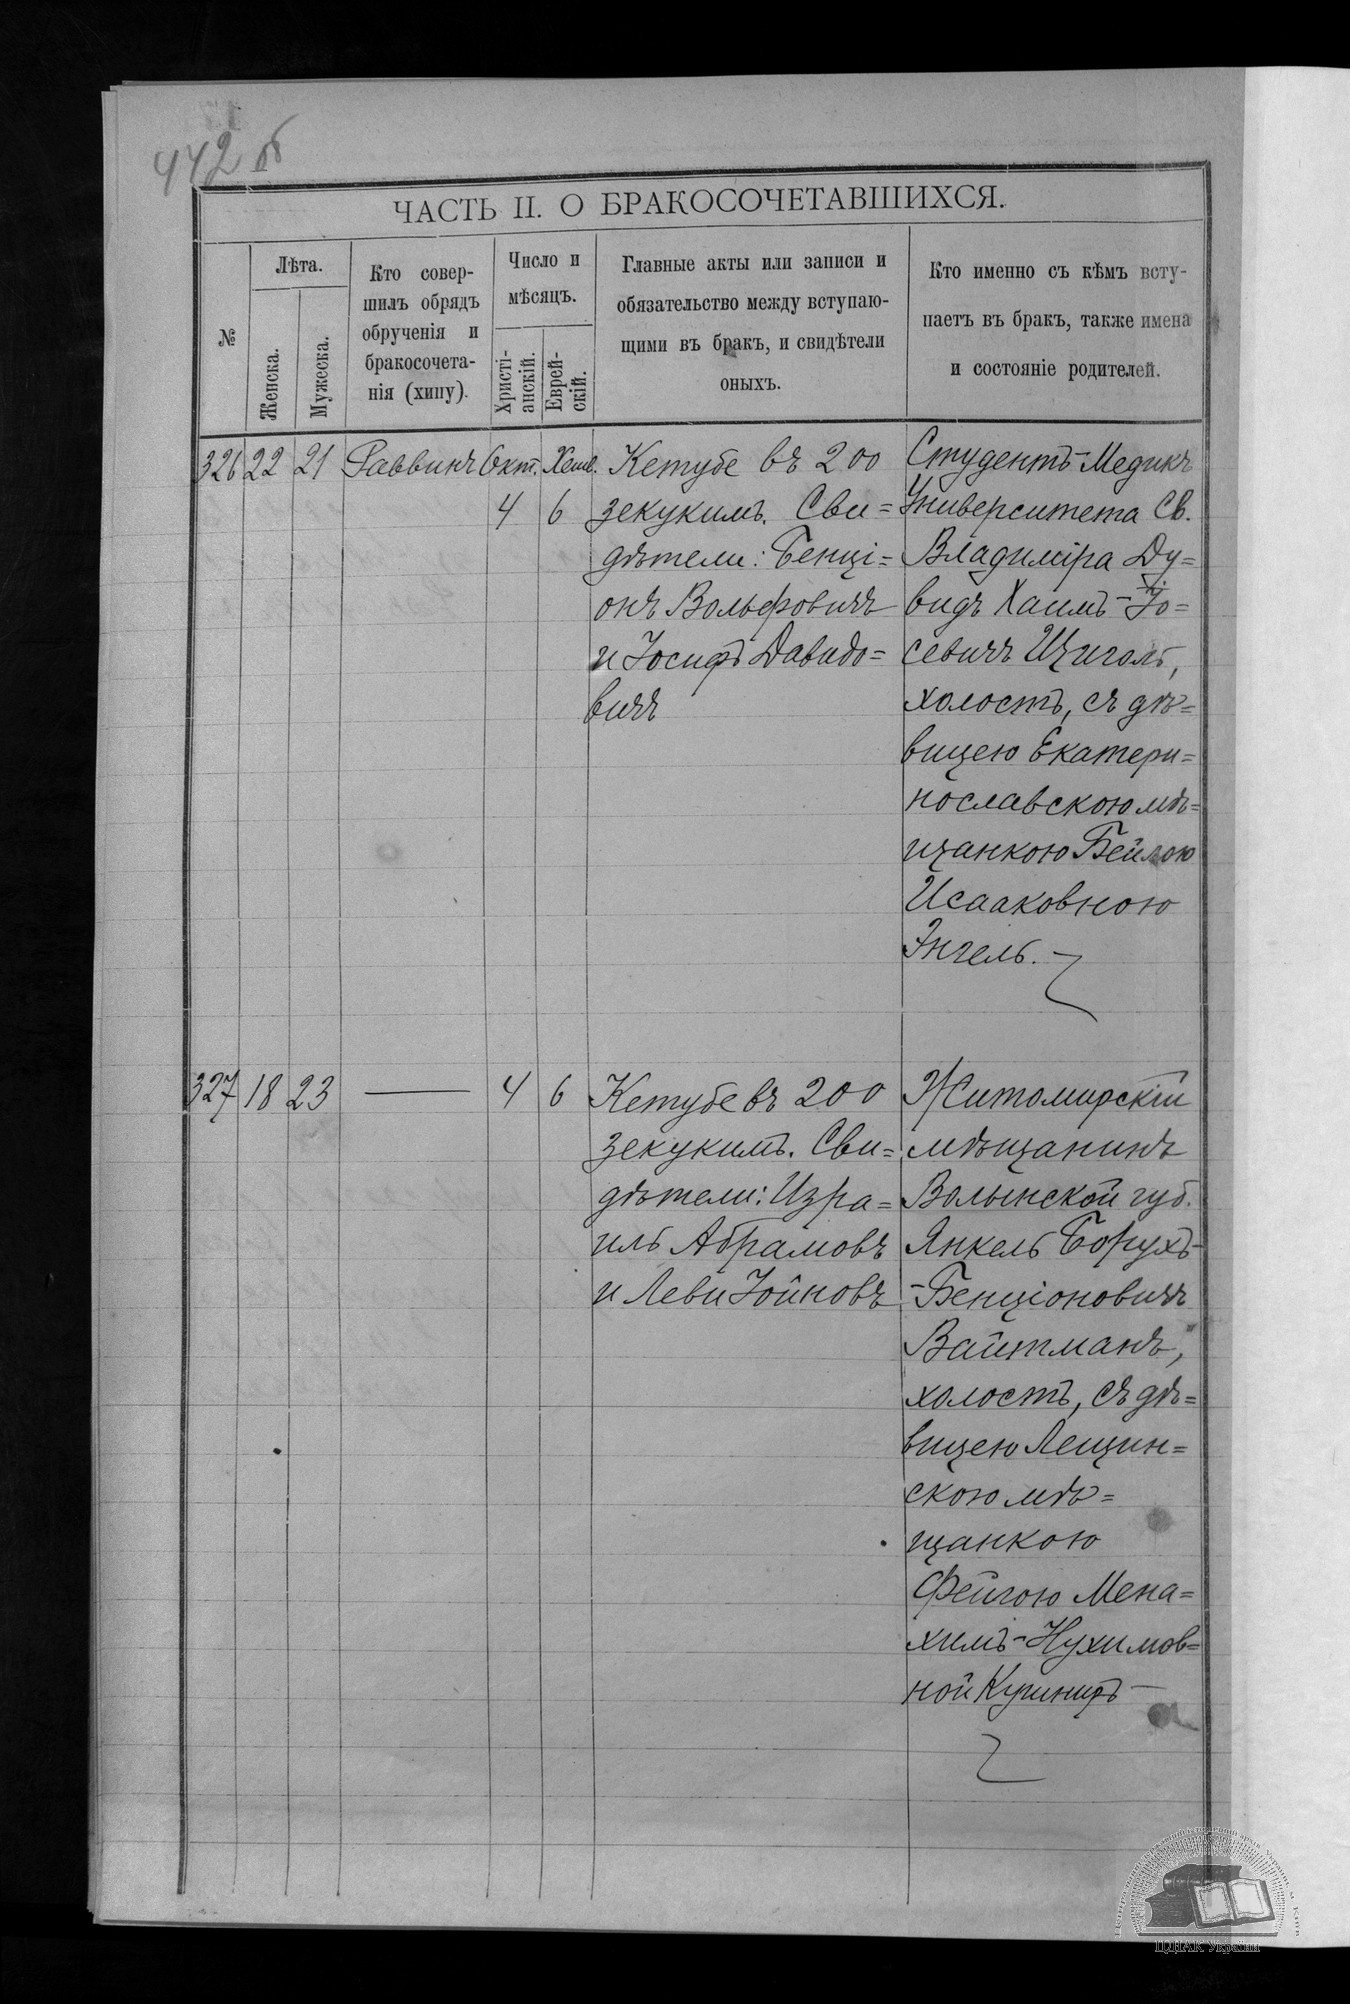 442 об
ЧАСТЬ II. О БРАКОСОЧЕТАВШИХСЯ.
№
Лѣта.
Женска.
Мужеска.
Кто совер-
шилъ обрядъ
обрученія и
бракосочета-
нія (хипу).
Число и
мѣсяцъ.
Христі-
анскій.
Еврей-
скій.
Главные акты или записи и
обязательство между вступаю-
щими въ бракъ, и свидѣтели
оныхъ.
Кто именно съ кѣмъ всту-
паетъ въ бракъ, также имена
и состояніе родителей.
326 22 21 Раввинъ Окт. Хешв.
4 6
Кетубе въ 200
зекукимъ. Сви=
дѣтели: Бенці=
онъ Вольфовичъ
и Іосифъ Давидо=
вичъ
Студентъ-Медикъ
Университета Св.
Владиміра Ду=
видъ Хаимъ-Іо=
севичъ Щиголь,
холостъ, съ дѣ=
вицею Екатери=
нославскою мѣ=
щанкою Бейлою
Исааковною
Энгель.
327 18 23 — 4 6
Кетубе въ 200
зекукимъ. Сви=
дѣтели: Изра=
иль Абрамовъ
и Леви Іойновъ
Житомирскій
мѣщанинъ
Волынской губ.
Янкель Борухъ-
-Бенціоновичъ
Вайтманъ,
холостъ, съ дѣ=
вицею Лещин=
скою мѣ=
щанкою
Фейгою Мена=
химъ-Нухимов=
ной Кушниръ —
ЦДІАК України